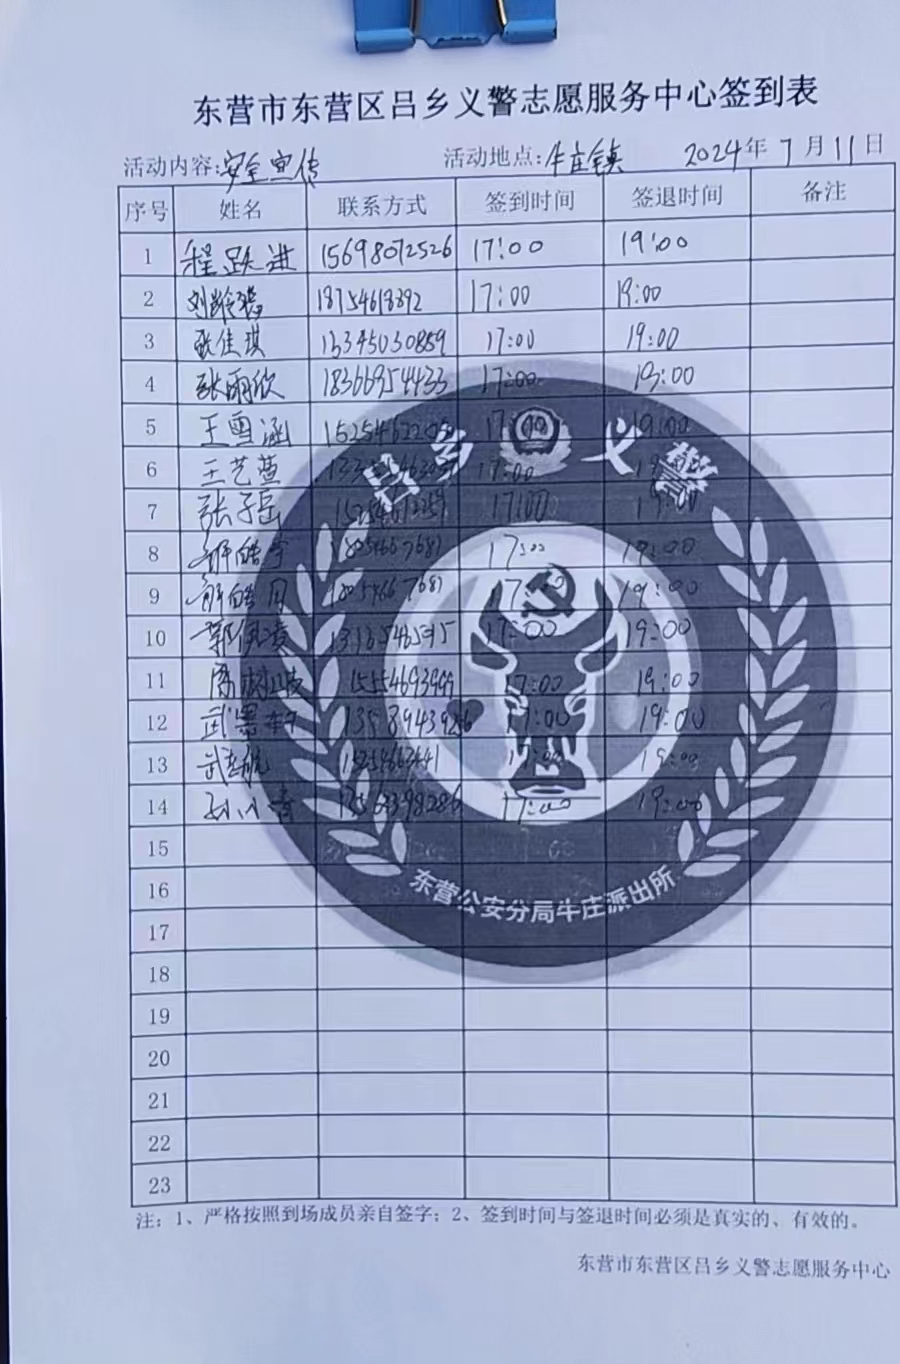 东营市东营区吕乡义警志愿服务中心签到表
活动内容:安全宣传 活动地点:牛庄镇 2024年7月11日
序号 姓名 联系方式 签到时间 签退时间 备注
1 程跃进 15698072526 17:00 19:00
2 刘 18754618392 17:00 19:00
3 张佳琪 13345030859 17:00 19:00
4 张雨欣 18366954433 17:00 19:00
5 王雪涵 17:00 19:00
6 王艺萱 17:00
7 张子岳 17:00 19:00
8 17:00 19:00
9 17:00 19:00
10 郭伊 17:00 19:00
11 15554693999 17:00 19:00
12 武 17:00 19:00
13 武 17:00 19:00
14 孙小青 17:00 19:00
15
16
17
18
19
20
21
22
23
吕乡义警
东营公安分局牛庄派出所
注:1、严格按照到场成员亲自签字;2、签到时间与签退时间必须是真实的、有效的。
东营市东营区吕乡义警志愿服务中心